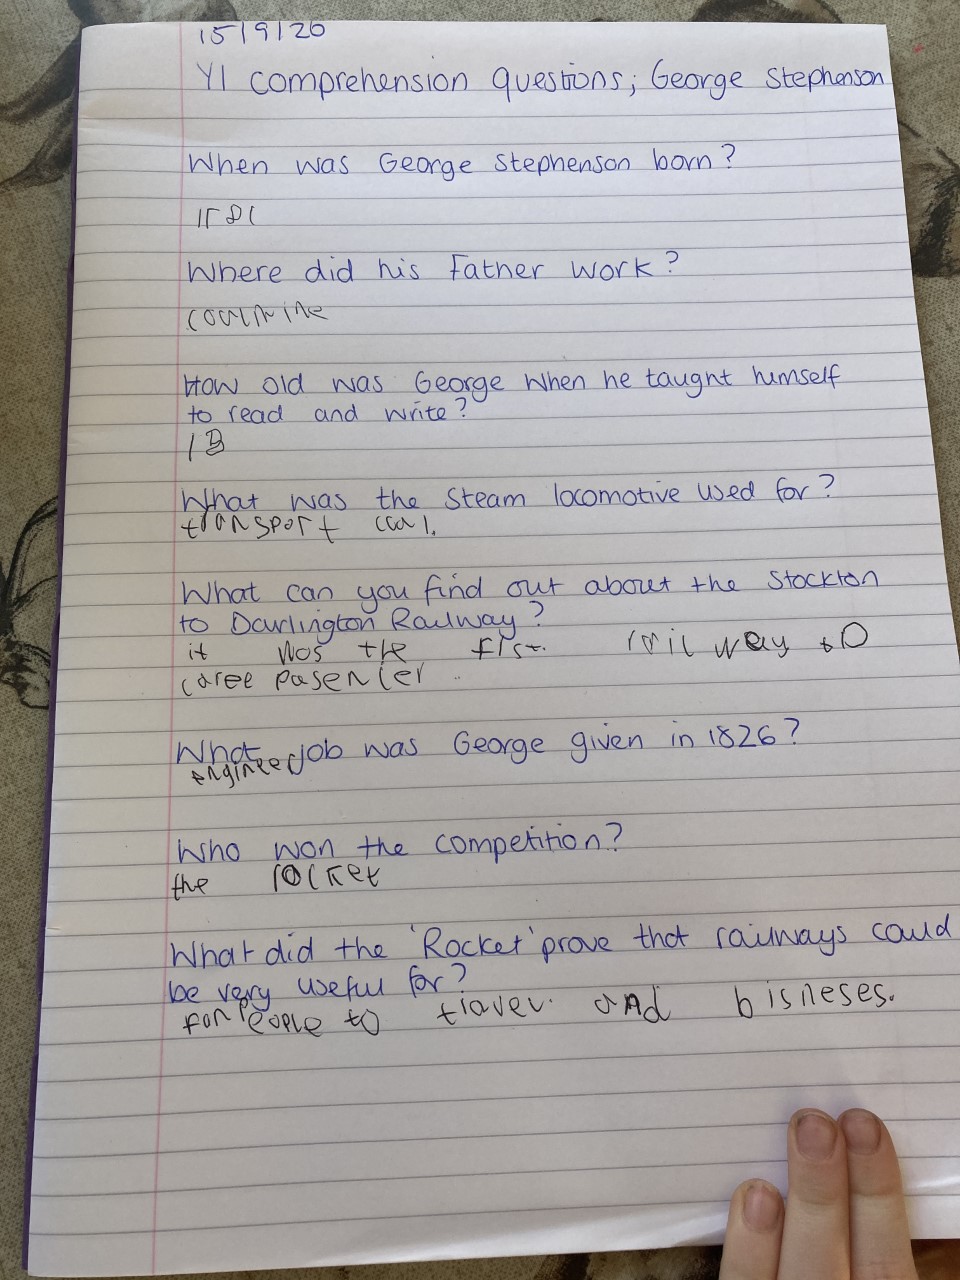 15/9/20
Y1 comprehension questions; George Stephenson
When was George Stephenson born?
1781
Where did his Father work?
coulmine
How old was George when he taught himself
to read and write?
18
What was the steam locomotive used for?
transport coal.
What can you find out about the Stockton
to Darlington Railway?
it was the fist. railway to
caree pasencer
What job was George given in 1826?
engineer
Who won the competition?
the rocket
What did the 'Rocket' prove that railways could
be very useful for?
for people to travel. and bisneses.